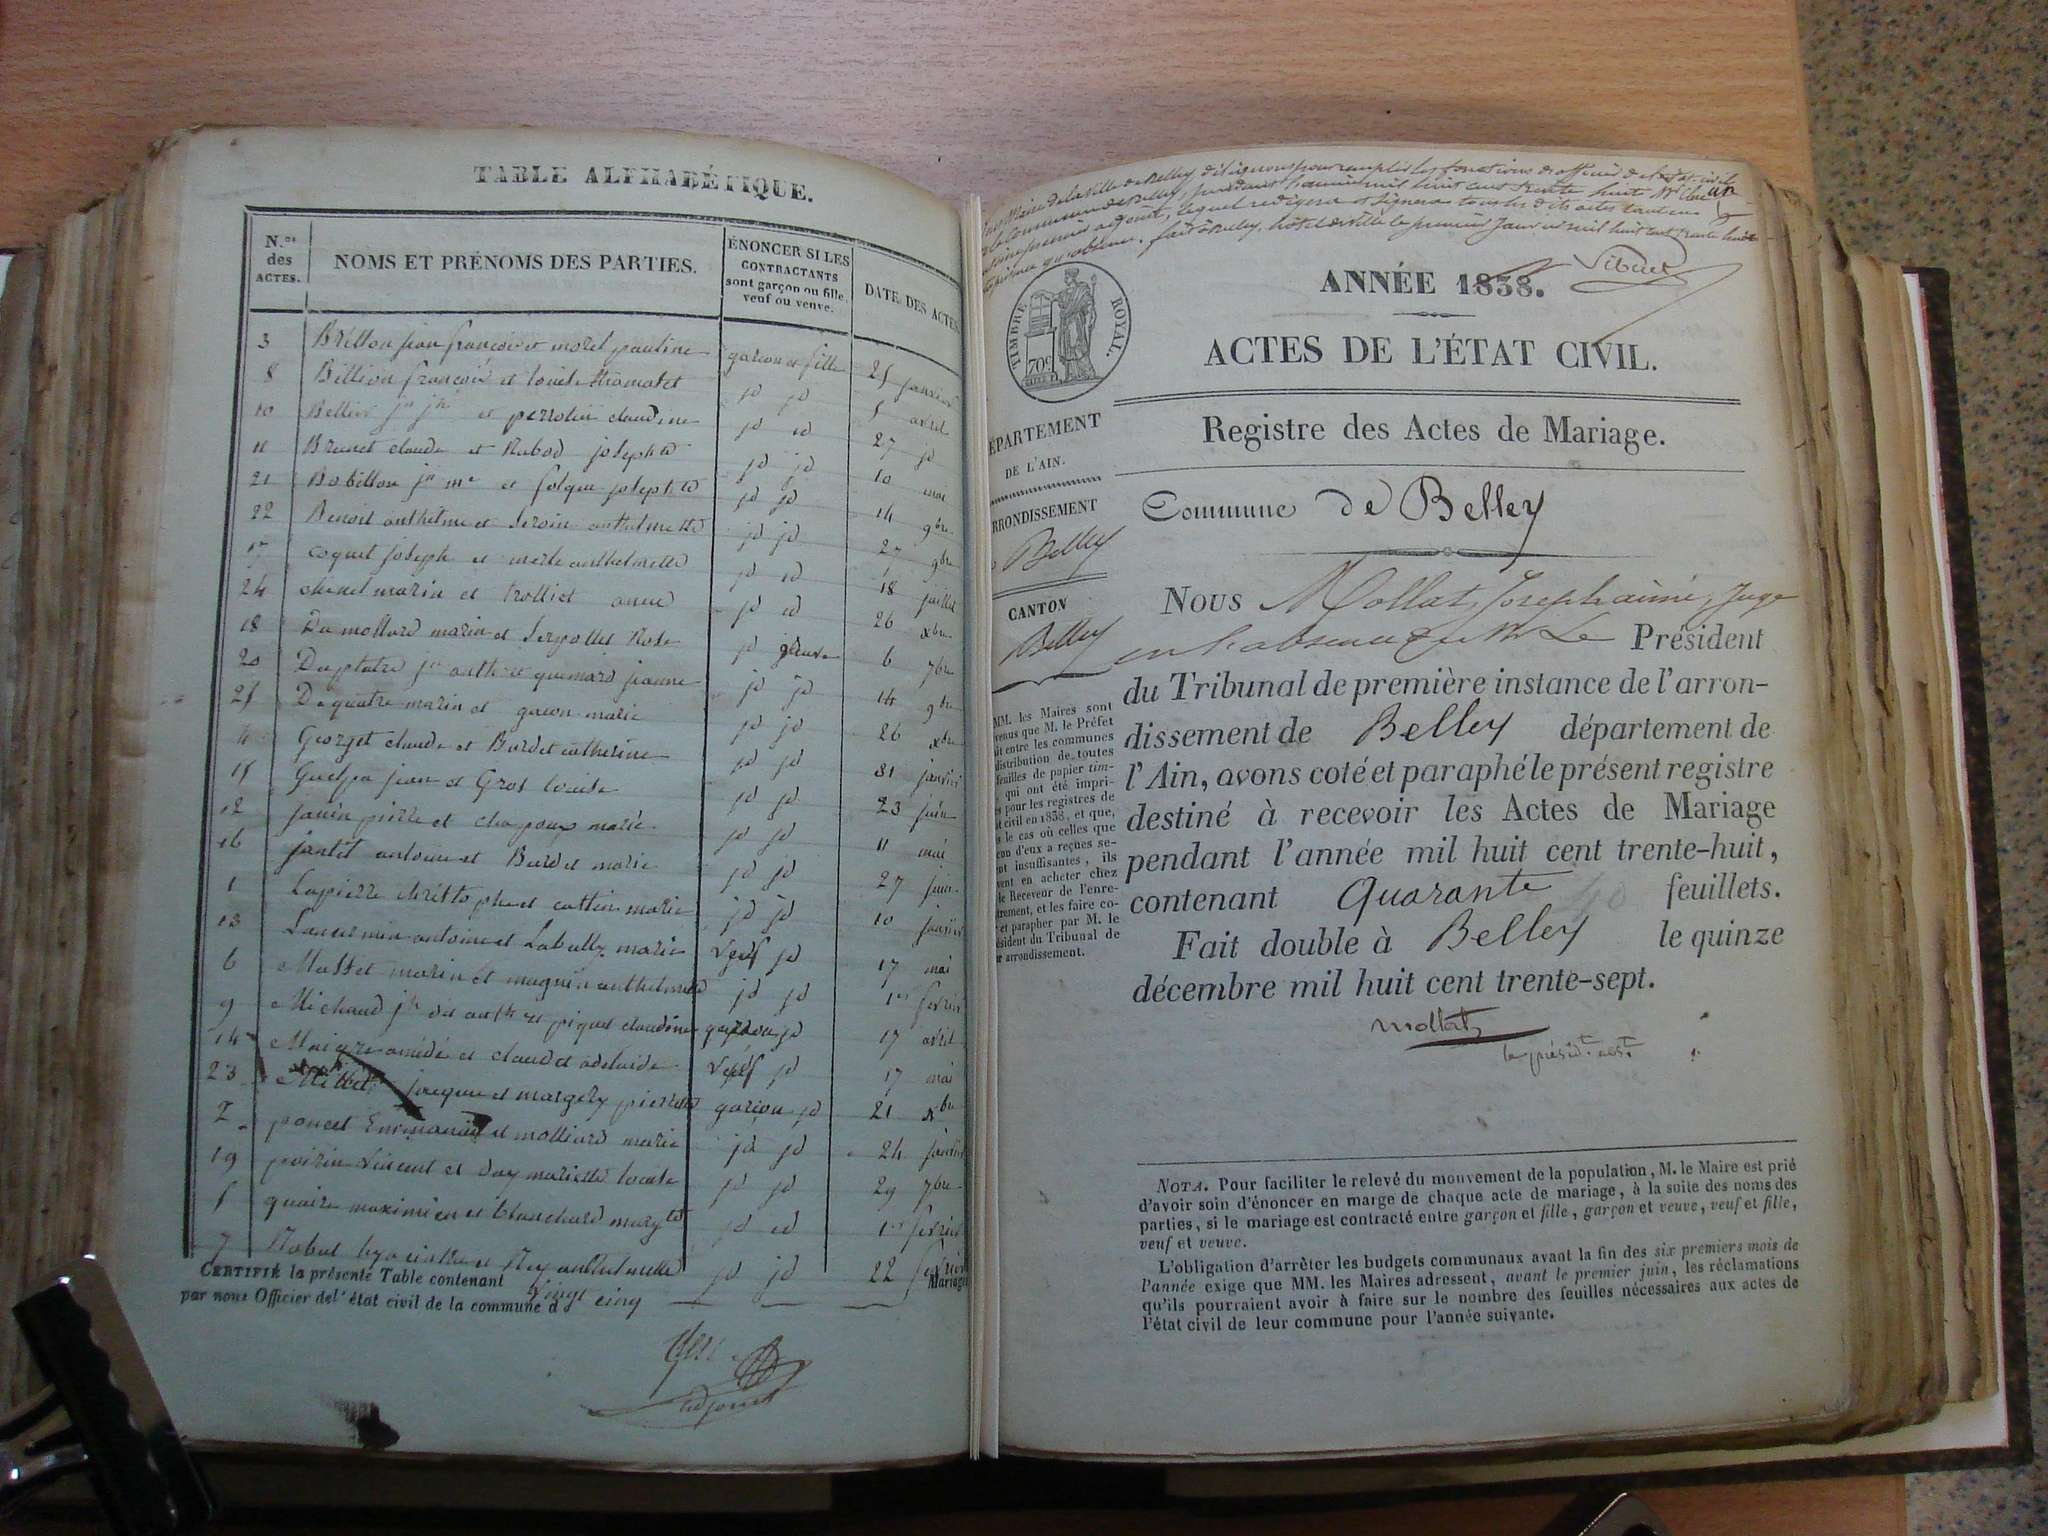 TABLE ALPHABÉTIQUE.
N.os des ACTES.
NOMS ET PRÉNOMS DES PARTIES.
ÉNONCER SI LES CONTRACTANTS sont garçon ou fille, veuf ou veuve.
DATE DES ACTES
3 Brillon jean françois et morel pauline garçon et fille 25 janvier
8 Billion françois et louise jd jd 5 avril
10 Bellier jn jh et perrotin claudine jd id 27 jd
11 Brunet claude et Rubod josephte jd jd 10 mai
21 Bobillon jn me et folque josephte jd jd 14 9bre
22 Benoit anthelme et anthelmette jd jd 27 9bre
17 coquet joseph et merle anthelmette jd id 18 juillet
24 chenel marin et trolliet anne jd id 26 xbre
18 Dumollard marin et Serpollet Rose jd veuve 6 7bre
20 Duplatre jn anth et quemard jeanne jd jd 14 9bre
25 Dequatre marin et gacon marie jd jd 26 xbre
4 Georget claude et Burdet catherine jd jd 31 janvier
15 Guelpa jean et Gros louise jd jd 23 juin
12 janin pierre et chapoux marie jd jd 11 mai
16 jantet antoine et Burdet marie jd jd 27 juin
1 Lapierre christophe et cattin marie jd jd 10 janvier
13 antoine et Labully marie veuf jd 17 mai
6 Masset marin et magnin anthelmette jd jd 1er fevrier
9 Michaud jh dit anth et piquet claudine garçon jd 17 avril
14 Maigre amédé et claudet adelaide veuf jd 17 mai
23 Millet jacques et margery pierrette garçon jd 21 xbre
2 poncet Emmanuel et molliard marie jd jd 24 janvier
19 poirin vincent et Day mariette louise jd jd 29 7bre
5 quaire maximien et blanchard margte jd id 1er fevrier
7 Robat hyacinthe et Rey anthelmette jd jd 22 fevrier
CERTIFIÉ la présente Table contenant vingt cinq Mariages
par nous Officier de l'état civil de la commune d
adjoint
Maire de la ville de Belley délèguons pour remplir les fonctions d'officier de l'état civil
de la commune de Belley, pendant l'année mil huit cent trente huit Mr
premier adjoint, lequel redigera et signera tous les dits actes tant en
présence qu'absence. fait à Belley, hôtel de ville le premier Janvier mil huit cent trente huit
Sibuet
TIMBRE ROYAL.
70c
ANNÉE 1838.
ACTES DE L'ÉTAT CIVIL.
Registre des Actes de Mariage.
ÉPARTEMENT
DE L'AIN.
RRONDISSEMENT
Belley
CANTON
Belley
MM. les Maires sont
venus que M. le Préfet
it entre les communes
distribution de toutes
feuilles de papier tim-
qui ont été impri-
s pour les registres de
t civil en 1838, et que,
s le cas où celles que
cun d'eux a reçues se-
nt insuffisantes, ils
vent en acheter chez
le Receveur de l'enre-
trement, et les faire co-
et parapher par M. le
ésident du Tribunal de
r arrondissement.
Commune de Belley
NOUS Mollat, Joseph aimé, Juge
en l'absence de Mr Le Président
du Tribunal de première instance de l'arron-
dissement de Belley département de
l'Ain, avons coté et paraphé le présent registre
destiné à recevoir les Actes de Mariage
pendant l'année mil huit cent trente-huit,
contenant Quarante 40 feuillets.
Fait double à Belley le quinze
décembre mil huit cent trente-sept.
Mollat
le présidt. abst.
NOTA. Pour faciliter le relevé du mouvement de la population, M. le Maire est prié
d'avoir soin d'énoncer en marge de chaque acte de mariage, à la suite des noms des
parties, si le mariage est contracté entre garçon et fille, garçon et veuve, veuf et fille,
veuf et veuve.
L'obligation d'arrêter les budgets communaux avant la fin des six premiers mois de
l'année exige que MM. les Maires adressent, avant le premier juin, les réclamations
qu'ils pourraient avoir à faire sur le nombre des feuilles nécessaires aux actes de
l'état civil de leur commune pour l'année suivante.